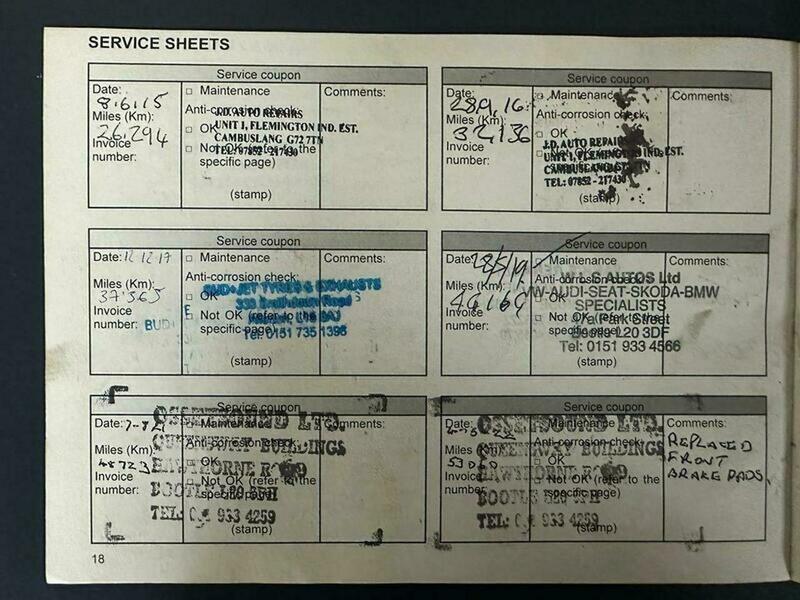 SERVICE SHEETS
Service coupon
Date: 8.6.15
Miles (Km): 26,294
Invoice number:
□ Maintenance
Anti-corrosion check:
□ OK
□ Not OK (refer to the
specific page)
J.D. AUTO REPAIRS
UNIT 1, FLEMINGTON IND. EST.
CAMBUSLANG G72 7TN
TEL: 07852 - 217430
(stamp)
Comments:
Service coupon
Date: 28.9.16
Miles (Km): 32,136
Invoice number:
□ Maintenance
Anti-corrosion check:
□ OK
□ Not OK (refer to the
specific page)
J.D. AUTO REPAIRS
UNIT 1, FLEMINGTON IND. EST.
CAMBUSLANG G72 7TN
TEL: 07852 - 217430
(stamp)
Comments:
Service coupon
Date: 12.12.17
Miles (Km):
Invoice number:
BUD
□ Maintenance
Anti-corrosion check:
□ OK
□ Not OK (refer to the
specific page)
TYRES & EXHAUSTS
Road
Tel: 0151 735 1395
(stamp)
Comments:
Service coupon
Date: 28/5/19
Miles (Km):
Invoice number:
□ Maintenance
Anti-corrosion check:
□ OK
□ Not OK (refer to the
specific page)
AUTOS Ltd
VW-AUDI-SEAT-SKODA-BMW
SPECIALISTS
Park Street
Bootle L20 3DF
Tel: 0151 933 4566
(stamp)
Comments:
Service coupon
Date:
Miles (Km): 48723
Invoice number:
□ Maintenance
Anti-corrosion check:
□ OK
□ Not OK (refer to the
specific page)
LTD.
BUILDINGS
HAWTHORNE ROAD
BOOTLE
TEL: 933 4259
(stamp)
Comments:
Service coupon
Date:
Miles (Km): 53060
Invoice number:
□ Maintenance
Anti-corrosion check:
□ OK
□ Not OK (refer to the
specific page)
LTD.
BUILDINGS
HAWTHORNE ROAD
BOOTLE
TEL: 933 4259
(stamp)
Comments:
REPLACED
FRONT
BRAKE PADS.
18